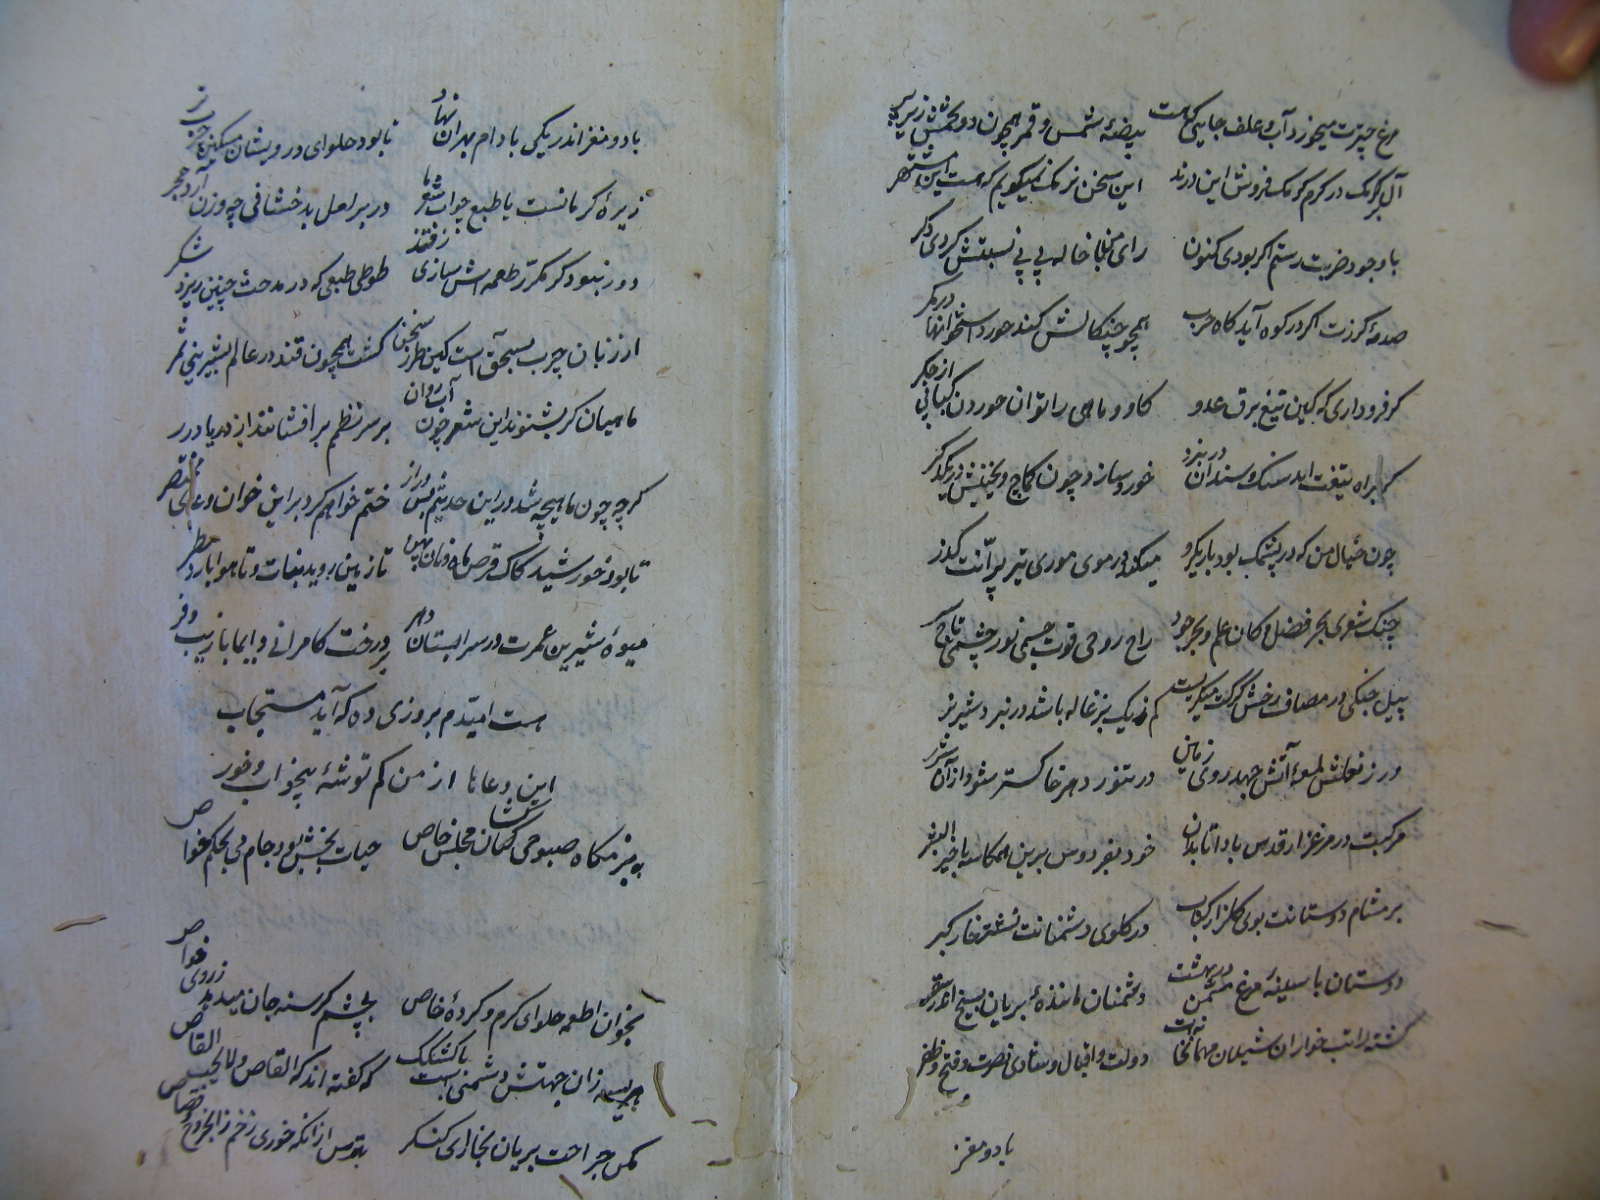 مرغ چترت میخورد آب و علف جایی که هست بیضهٔ شمس و قمر همچون دو تخمش زیر پر
این سخن نز نمک میگویم که هست این مشتهر
با وجود ضربت رستم اگر بودی کنون رای من با خاله بی بی نسبتش کردی ذکر
صدمهٔ گرزت اگر در کوه آید گاه حرب همچو چنگالش کند خورد استخوانها در کمر
کر و فر داری که کین تیغ برق عدو گاو و ماهی را توان خوردن کبابی از جگر
گر براه تیغت آید سنگ و سندان در نبرد خورد سازد چون کماج و یخنیش در یکدگر
چون خیال من که در پشمک بود باریک رو میکند در موی موری تیر پرانت گذر
بحر فضل و کان علم و بحر جود راح روحی قوت جسمی نور چشمی تاج سر
پیل جنگی در مصاف رخش گرگت میگریست کم ز یک بزغاله باشد در نبرد شیر نر
ور ز نعلش لمعهٔ آتش جهد روی زمین در تنور دهر خاکستر شود از آن شرر
مرکبت در مرغزار قدس بادا تا بدان خود بفردوس برین همکاسه با خیر البشر
بر مشام دوستانت بوی گلزار کباب در گلوی دشمنانت نشتر خار
دوستان با سلینهٔ مرغ مسمن در بهشت دشمنان مانندهٔ بریان بسیخ اندر سقر
کشته راتب خواران شیلان مهمانخانه‌ات دولت و اقبال و شادی نصرت و فتح و ظفر
بادو مغز
بادو مغز اندر یکی بادام بهران نهاد تا بود حلوای درویشان مسکین چرب تر
زیرهٔ کرمانست با طبع جواب شعرها در بر لعل بدخشانی چه وزن آرد حجر
دور نبود گر مکرر طعمه اش سازی ز قند طوطی طبعی که در مدحت چنین ریزد شکر
از زبان چرب بسحق است کین طرز سخن گشت همچون قند در عالم بشیرینی ثمر
ماهیان گر بشنوند این شعر چون آب روان بر سر نظم بر افشانند از دریا درر
گر چه چون ماهیچه شد در این حدیثم بس دراز ختم خواهم کرد بر این خوان دعای مختصر
تا بود خورشید کاک قرص ماه و نان پهن تا زمین روید نبات و تا هوا بارد مطر
میوهٔ شیرین عمرت در سرابستان دهر بر درخت کامرانی دایما با زیب و فر
هست امیدم بروزی ده که آید مستجاب
این دعاها از من کم توشهٔ بیخواب و خور
به بزمگاه صبوحی کشان مجلس خاص حیات بخش بود جام می بحکم خواص
بخوان اطعمه حلوای کرم و کردهٔ خاص بچشم گرسنه جان میدهد ز روی خواص
هریسه زان جهتش دشمنی است با کشکک که گفته اند که القاص لا یحب القاص
مکن جراحت بریان بخارای کنگر بترس از آنکه خوری زخم ز الجروح قصاص